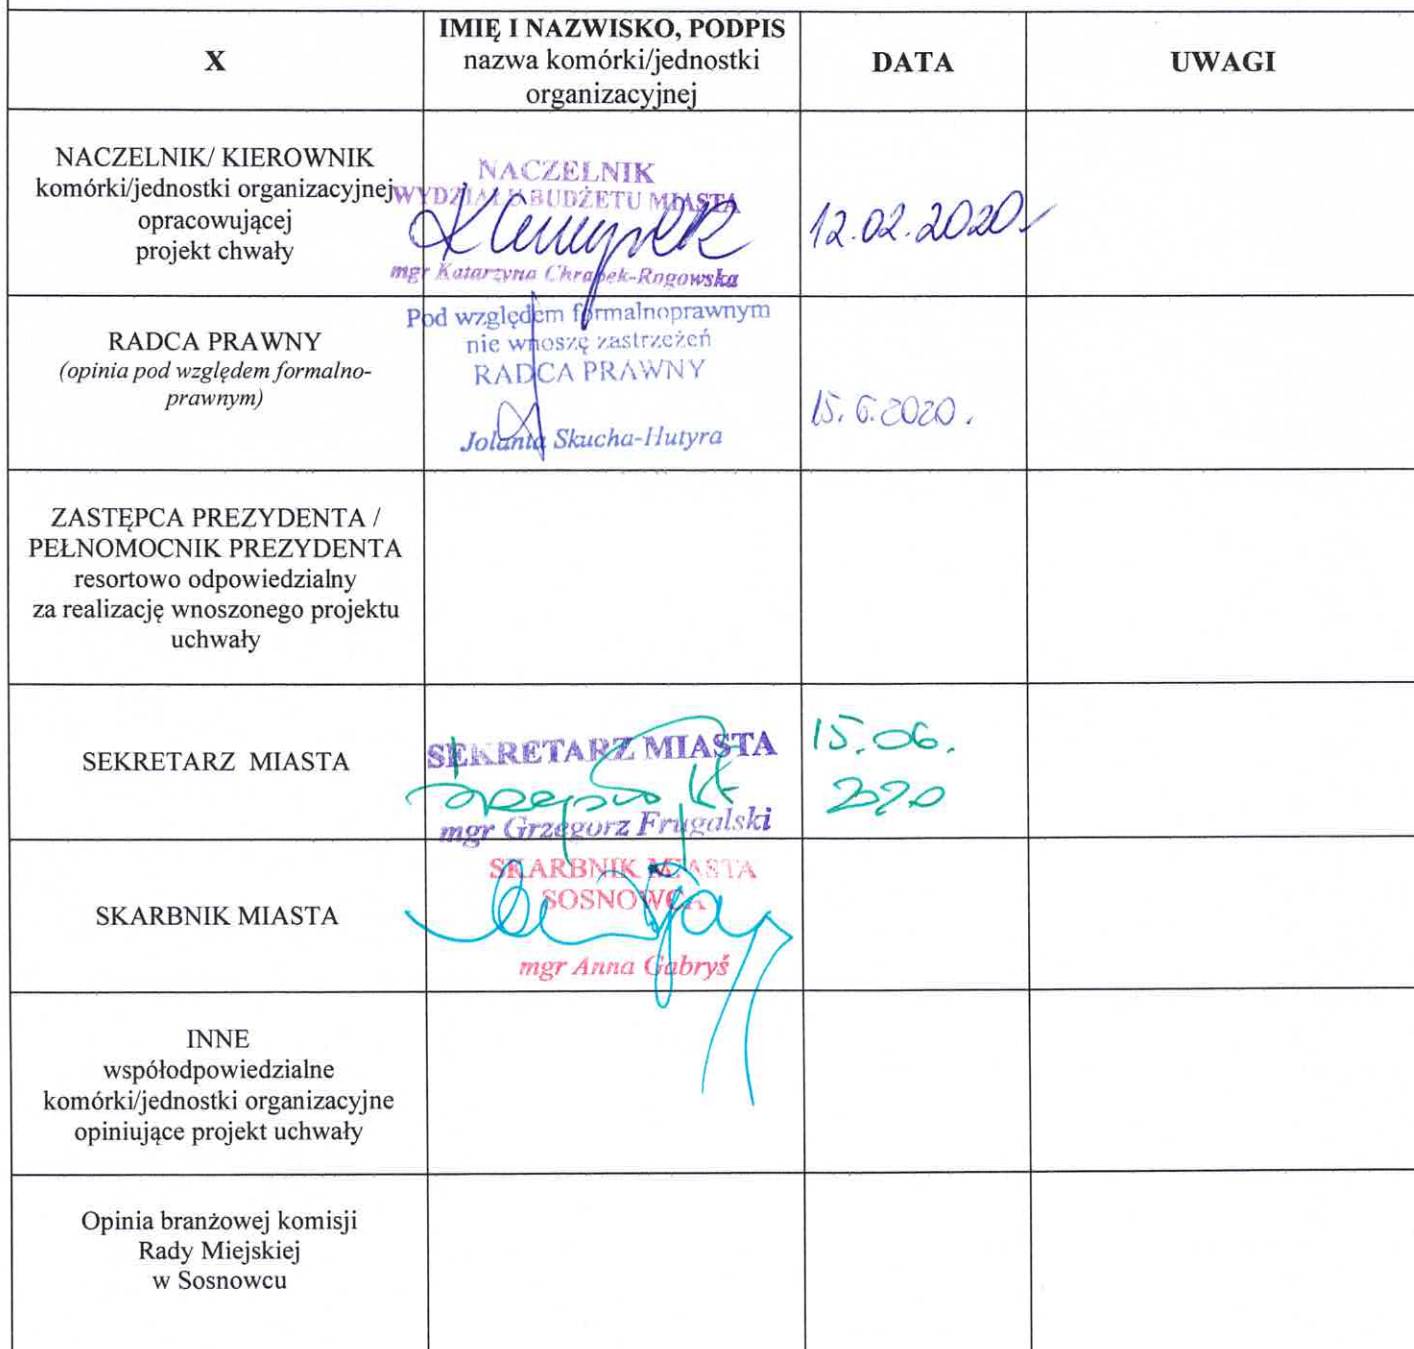 X
IMIĘ I NAZWISKO, PODPIS
nazwa komórki/jednostki
organizacyjnej
DATA
UWAGI
NACZELNIK/ KIEROWNIK
komórki/jednostki organizacyjnej
opracowującej
projekt chwały
NACZELNIK
WYDZIAŁU BUDŻETU MIASTA
mgr Katarzyna Chrapek-Rogowska
12.02.2020
RADCA PRAWNY
(opinia pod względem formalno-
prawnym)
Pod względem formalnoprawnym
nie wnoszę zastrzeżeń
RADCA PRAWNY
Jolanta Skucha-Hutyra
15.6.2020.
ZASTĘPCA PREZYDENTA /
PEŁNOMOCNIK PREZYDENTA
resortowo odpowiedzialny
za realizację wnoszonego projektu
uchwały
SEKRETARZ MIASTA
SEKRETARZ MIASTA
mgr Grzegorz Frugalski
15.06.
2020
SKARBNIK MIASTA
SKARBNIK MIASTA
SOSNOWCA
mgr Anna Gabryś
INNE
współodpowiedzialne
komórki/jednostki organizacyjne
opiniujące projekt uchwały
Opinia branżowej komisji
Rady Miejskiej
w Sosnowcu